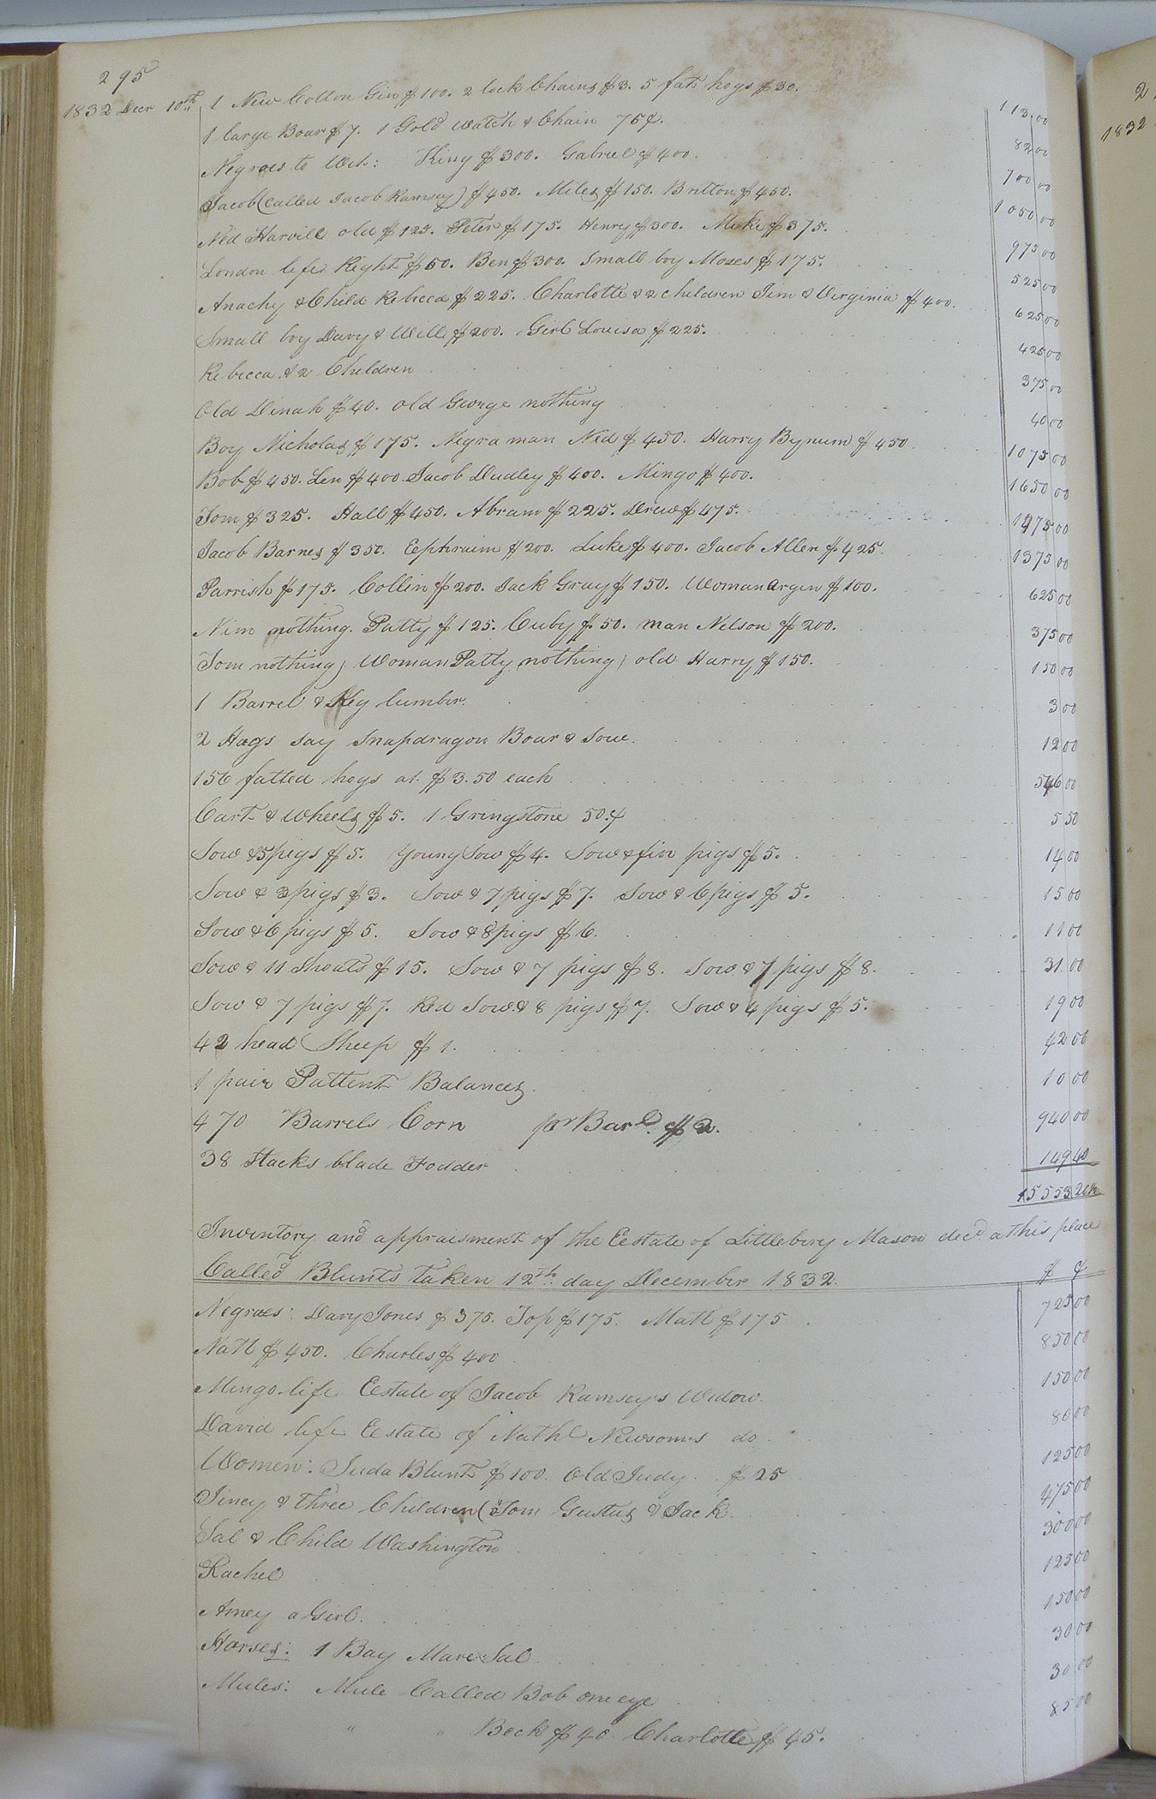 295
1832 Decr 10th 1 New Cotton Gin $100. 2 lock Chains $3. 5 fat hogs $30.
113.00
1 large Boar $7. 1 Gold Watch & Chain 75$.
82 00
Negroes to Wit: King $300. Gabriel $400.
700 00
Jacob (called Jacob Ramsey) $450. Miles $150. Britton $450.
1050 00
Ned Harvill old $125. Peter $175. Henry $300. Mike $375.
975 00
London life Right $50. Ben $300. Small boy Moses $175.
525 00
Anachy & Child Rebecca $225. Charlotte & 2 children Jim & Virginia $400.
625 00
Small boy Davy & Will $200. Girl Louisa $225.
425 00
Rebecca & 2 Children
375 00
Old Dinah $40. old George nothing
40 00
Boy Nicholas $175. Negra man Ned $450. Harry Bynum $450.
1075 00
Bob $450. Len $400 Jacob Dudley $400. Mingo $400.
1650 00
Tom $325. Hall $450. Abram $225. Drew $475.
1475 00
Jacob Barnes $350. Eephraim $200. Luke $400. Jacob Allen $425.
1375 00
Parrish $175. Collin $200. Jack Gray $150. Woman Argen $100.
625 00
Nim nothing. Patty $125. Cuby $50. man Nelson $200.
375 00
Tom nothing; Woman Patty nothing; old Harry $150.
150 00
1 Barrel & Keg lumber.
3 00
2 Hogs say Snapdragon Boar & Sow.
12 00
156 fatted hogs at $3.50 each
546 00
Cart & Wheels $5. 1 Gringstone 50.¢
5 50
Sow & 5 pigs $5. Young Sow $4. Sow & five pigs $5.
14 00
Sow & 3 pigs $3. Sow & 7 pigs $7. Sow & 6 pigs $5.
15 00
Sow & 6 pigs $5. Sow & 8 pigs $6.
11 00
Sow & 11 Shoats $15. Sow & 7 pigs $8. Sow & 7 pigs $8.
31 00
Sow & 7 pigs $7. Red Sow & 8 pigs $7. Sow & 4 pigs $5.
19 00
42 head Sheep $1.
42 00
1 pair Pattent Balances
10 00
470 Barrels Corn pr Barl. $2.
940 00
38 Stacks blade Fodder
149 40
Inventory and appraisment of the Eestate of Littlebery Mason decd at his place
Called Blunts taken 12th day December 1832.
$ ¢
Negroes: Davy Jones $375. Top $175. Matt $175
725 00
Natt $450. Charles $400
850 00
Mingo life Eestate of Jacob Ramsey's Widow.
150 00
David life Eestate of Nathl Newsom's do "
80 00
Women: Juda Blunt $100. Old Judy $25
125 00
Jincy & three Children (Tom Gustus & Jack.
475 00
Sal & Child Washington
300 00
Rachel
125 00
Amey a Girl.
150 00
Horses: 1 Bay Mare Sal
30 00
Mules: Mule Called Bob one eye
30 00
" " Beck $40. Charlotte $45.
85 00
2
1832